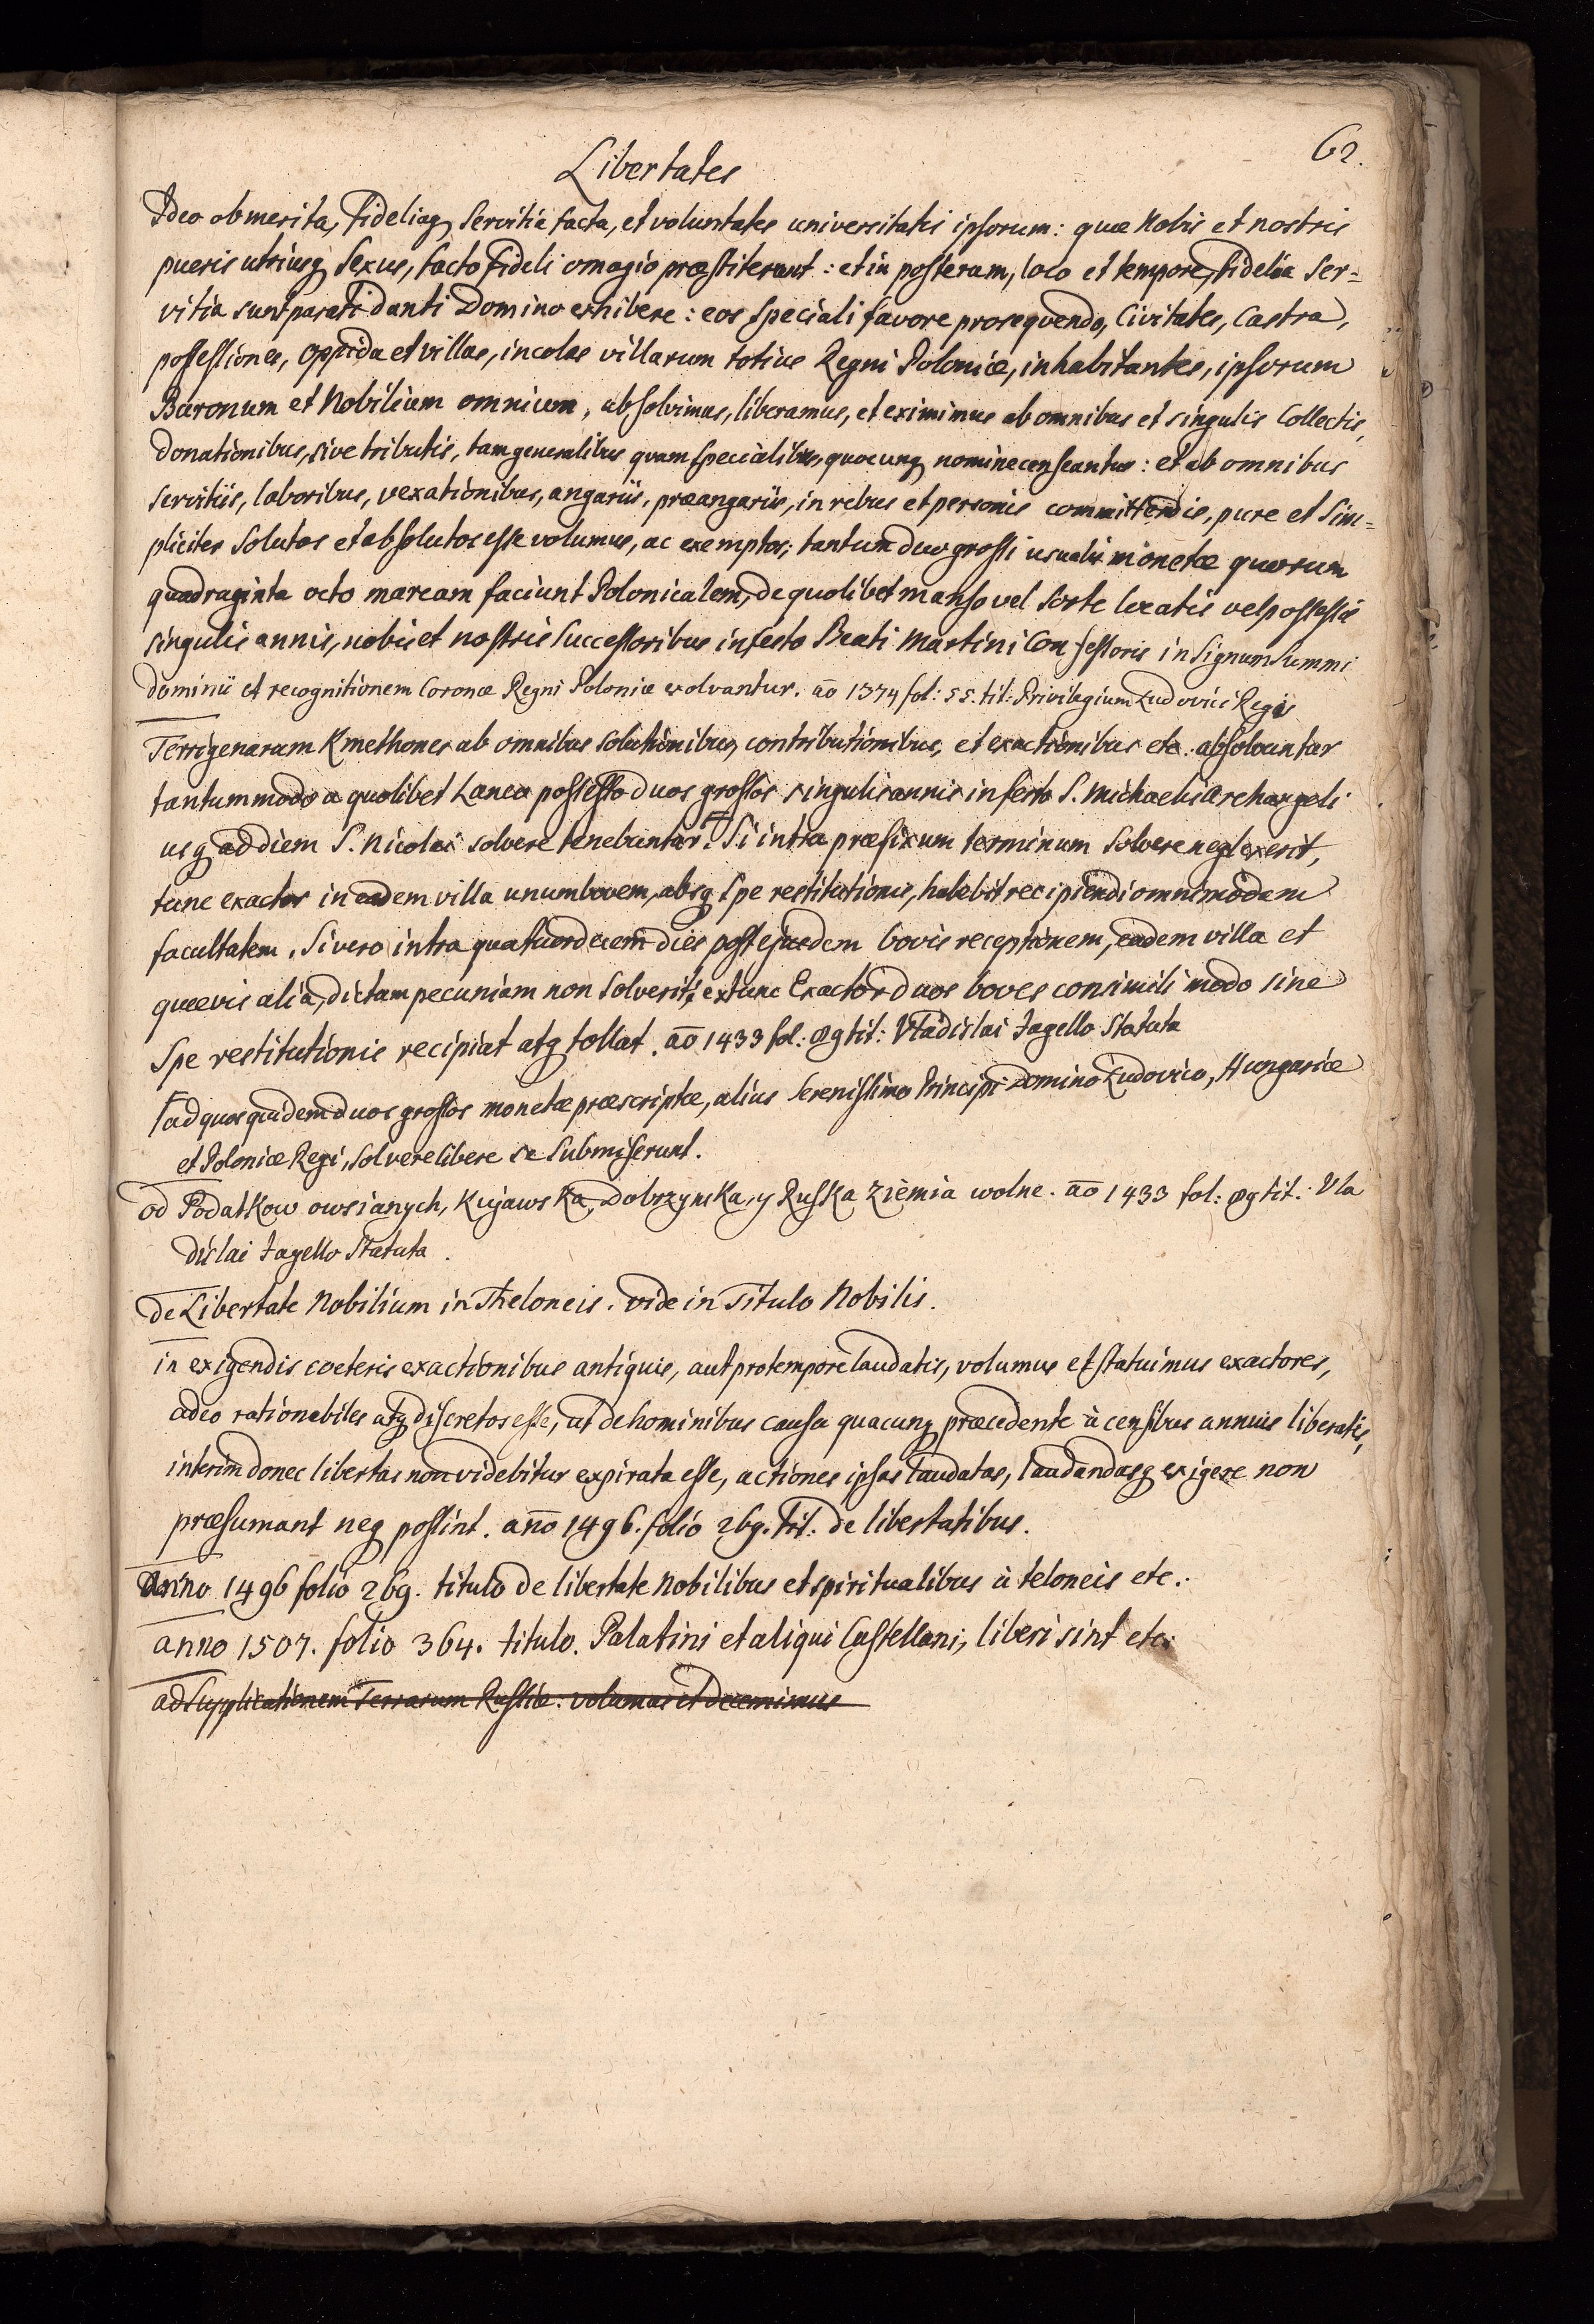 62.
Libertates
Ideo ob merita, Fideliaq Servitia facta, et voluntates universitatis ipsorum: quæ Nobis et nostris
pueris utriusq Sexus, facto Fideli omagio præstiterunt: et in posterum, loco et tempore, fidelia Ser=
vitia sunt parati danti Domino exhibere: eos speciali favore prosequendo, Civitates, Castra,
possessiones, Oppida et villas, incolas villarum totius Regni Poloniæ, inhabitantes, ipsorum
Baronum et Nobilium omnium, absolvimus, liberamus, et eximimus ab omnibus et singulis Collectis,
donationibus, sive tributis, tam generalibus quam specialibus, quocunq nomine censeantur: et ab omnibus
servitiis, laboribus, vexationibus, angariis, præangariis, in rebus et personis committendis, pure et Sim=
pliciter Solutos et absolutos esse volumus, ac exemptos; tantum duo grossi usualis monetæ quorum
quadraginta octo marcam faciunt Polonicalem, de quolibet manso vel Sorte locatis vel possessis
singulis annis, nobis et nostris Successoribus in festo Beati Martini Confessoris in Signum Summi
dominii et recognitionem Coronæ Regni Poloniæ exolvantur. ao 1374 fol: 55. tit: Privilegium Ludovici Regis
Terrigenarum Kmethones ab omnibus solutionibus, contributionibus, et exactionibus etc. absolvuntur
tantummodo a quolibet Laneo possesso duos grossos singulis annis in festo S. Michaelis Archangeli
usq ad diem S. Nicolai solvere tenebuntur. Si intra præfixum terminum solvere neglexerit,
tunc exactor in eadem villa unum bovem, absq spe restitutionis, habebit recipiendi omnimodam
facultatem. Si vero intra quatuordecem dies post ejusdem bovis receptionem, eadem villa et
quævis alia, dictam pecuniam non solverit, extunc Exactor duos boves consimili modo sine
Spe restitutionis recipiat atq tollat. ao 1433 fol: 89 tit: Vladislai Jagello Statuta
ad quos quidem duos grossos monetæ præscriptæ, alius Serenissimo Principi Domino Ludovico, Hungariæ
et Poloniæ Regi, solvere libere se Submiserunt.
od Podatkow owsianych, Kujawska, Dobrzynska, y Ruska Ziemia wolne. ao 1433 fol: 89 tit: Vla
dislai Jagello Statuta.
de Libertate Nobilium in Theloneis. vide in Titulo Nobilis.
in exigendis coeteris exactionibus antiquis, aut pro tempore laudatis, volumus et statuimus exactores,
adeo rationabiles atq discretos esse, ut de hominibus causa quacunq præcedente à censibus annuis liberatis,
interim donec libertas non videbitur expirata esse, actiones ipsas laudatas, laudandasq exigere non
præsumant neq possint. año 1496. folio 269. tit: de libertatibus.
Anno 1496 folio 269. titulo de libertate Nobilibus et spiritualibus à teloneis etc.
anno 1507. folio 364. titulo. Palatini et aliqui Castellani, liberi sint etc:
ad Supplicationem Terrarum Russiæ: volumus et decernimus